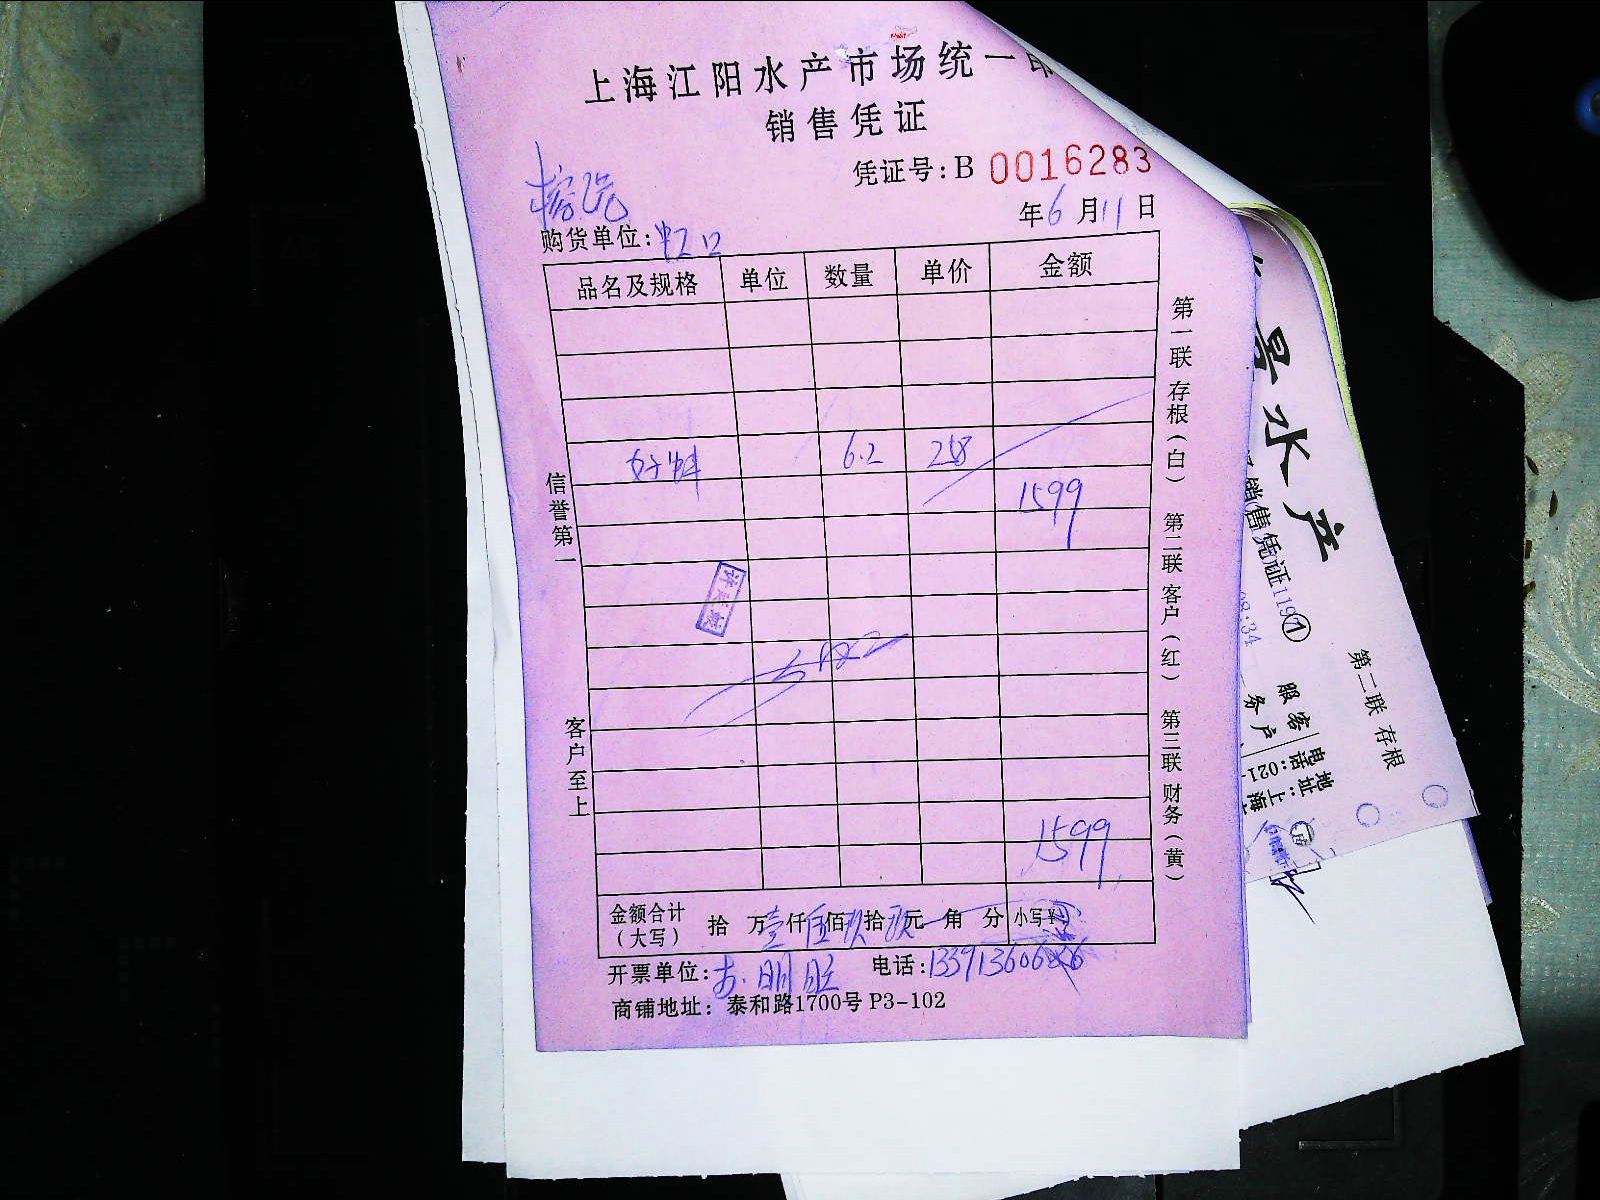 上海江阳水产市场统一印
销售凭证
凭证号:B 0016283
年6月11日
购货单位:虹口
品名及规格 单位 数量 单价 金额
好蚌 6.2 258
1599
1599
金额合计(大写) 拾 万壹仟伍佰玖拾玖元 角 分 小写¥
开票单位: 明
电话:
商铺地址: 泰和路1700号 P3-102
信誉第一
客户至上
第一联 存根(白) 第二联 客户(红) 第三联 财务(黄)
景水产
销售凭证
8:34
第二联 存根
客户
服务
电话:021-
地址:上海